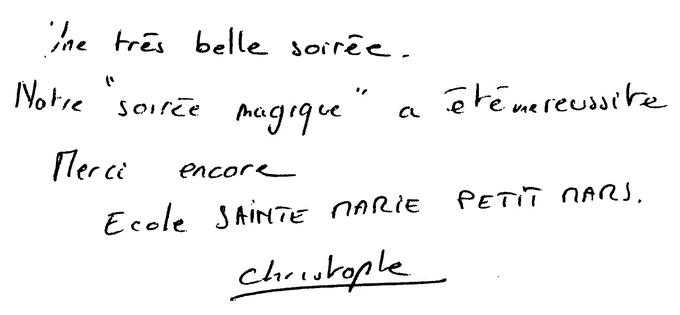 Une très belle soirée.
Notre "soirée magique" a été une reussite
Merci encore
Ecole SAINTE MARIE PETIT MARS.
Christophe